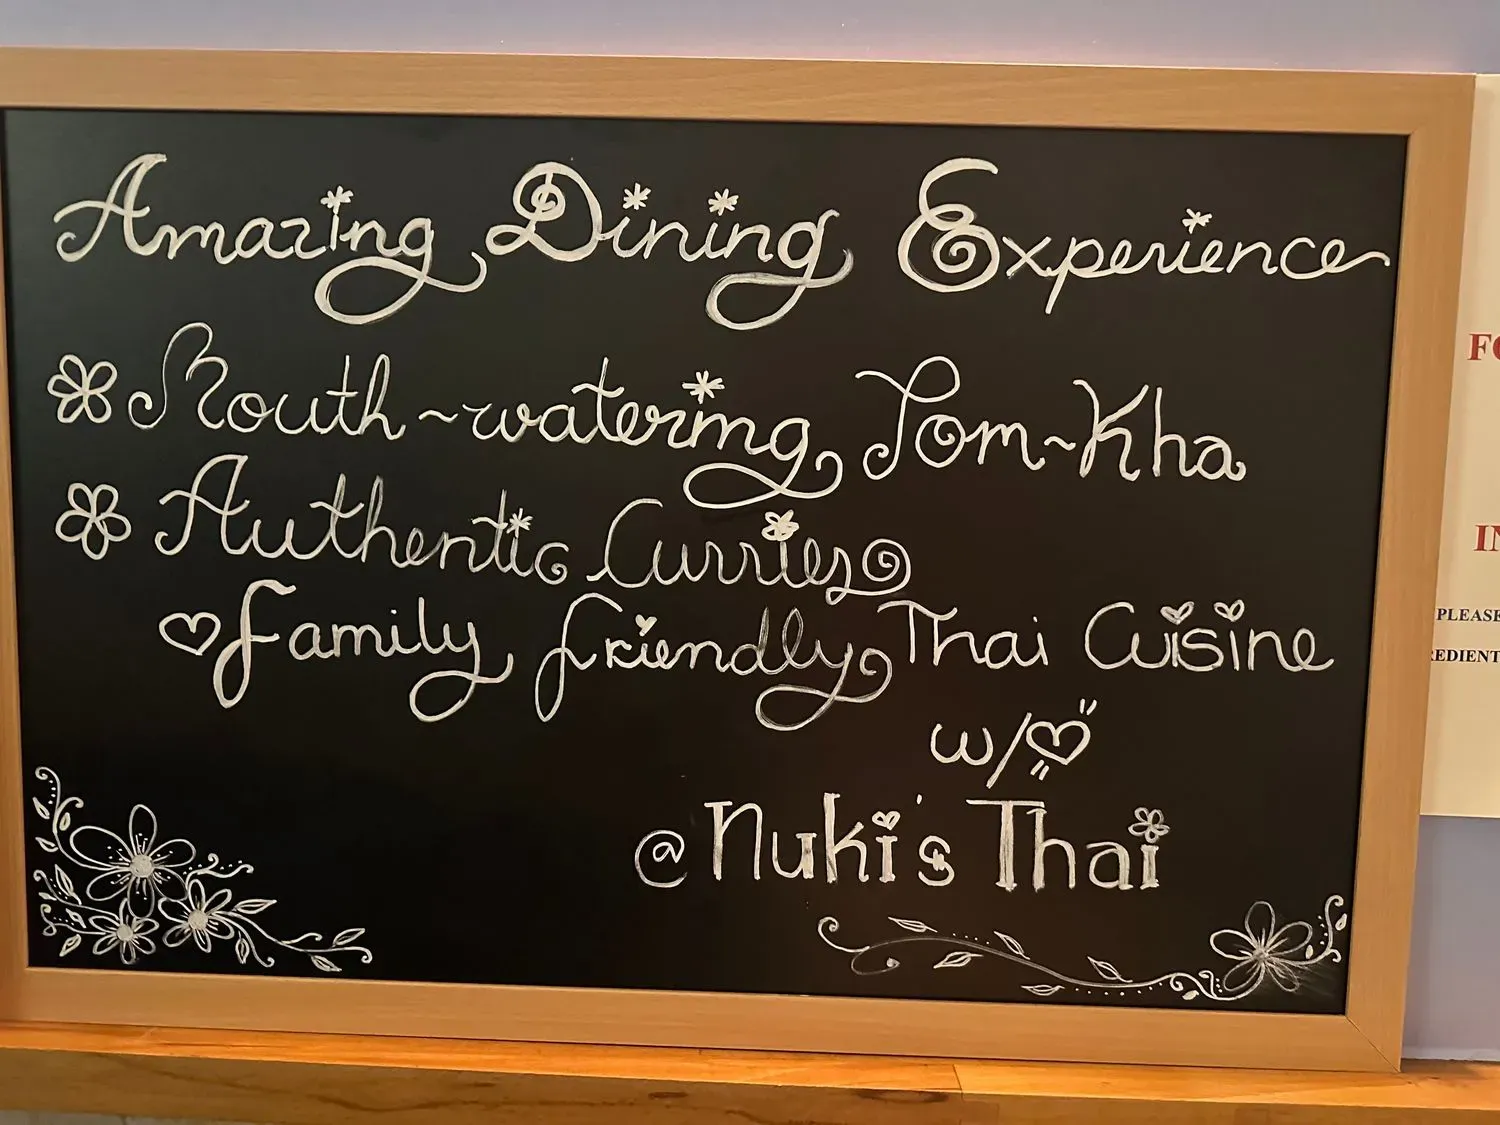 Amazing Dining Experience
Mouth~watering Tom~Kha
Authentic Curries
Family friendly Thai Cuisine
w/
@Nuki's Thai
PLEASE